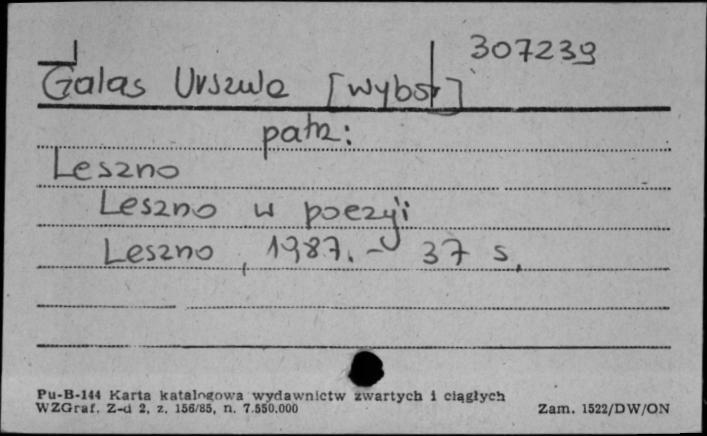 307239
Galas Urszula [wybór]
patrz:
Leszno
Leszno w poezji
Leszno, 1987. - 37 s.
Pu-B-144 Karta katalogowa wydawnictw zwartych i ciągłych
WZGraf. Z-d 2, z. 156/85, n. 7.550.000
Zam. 1522/DW/ON